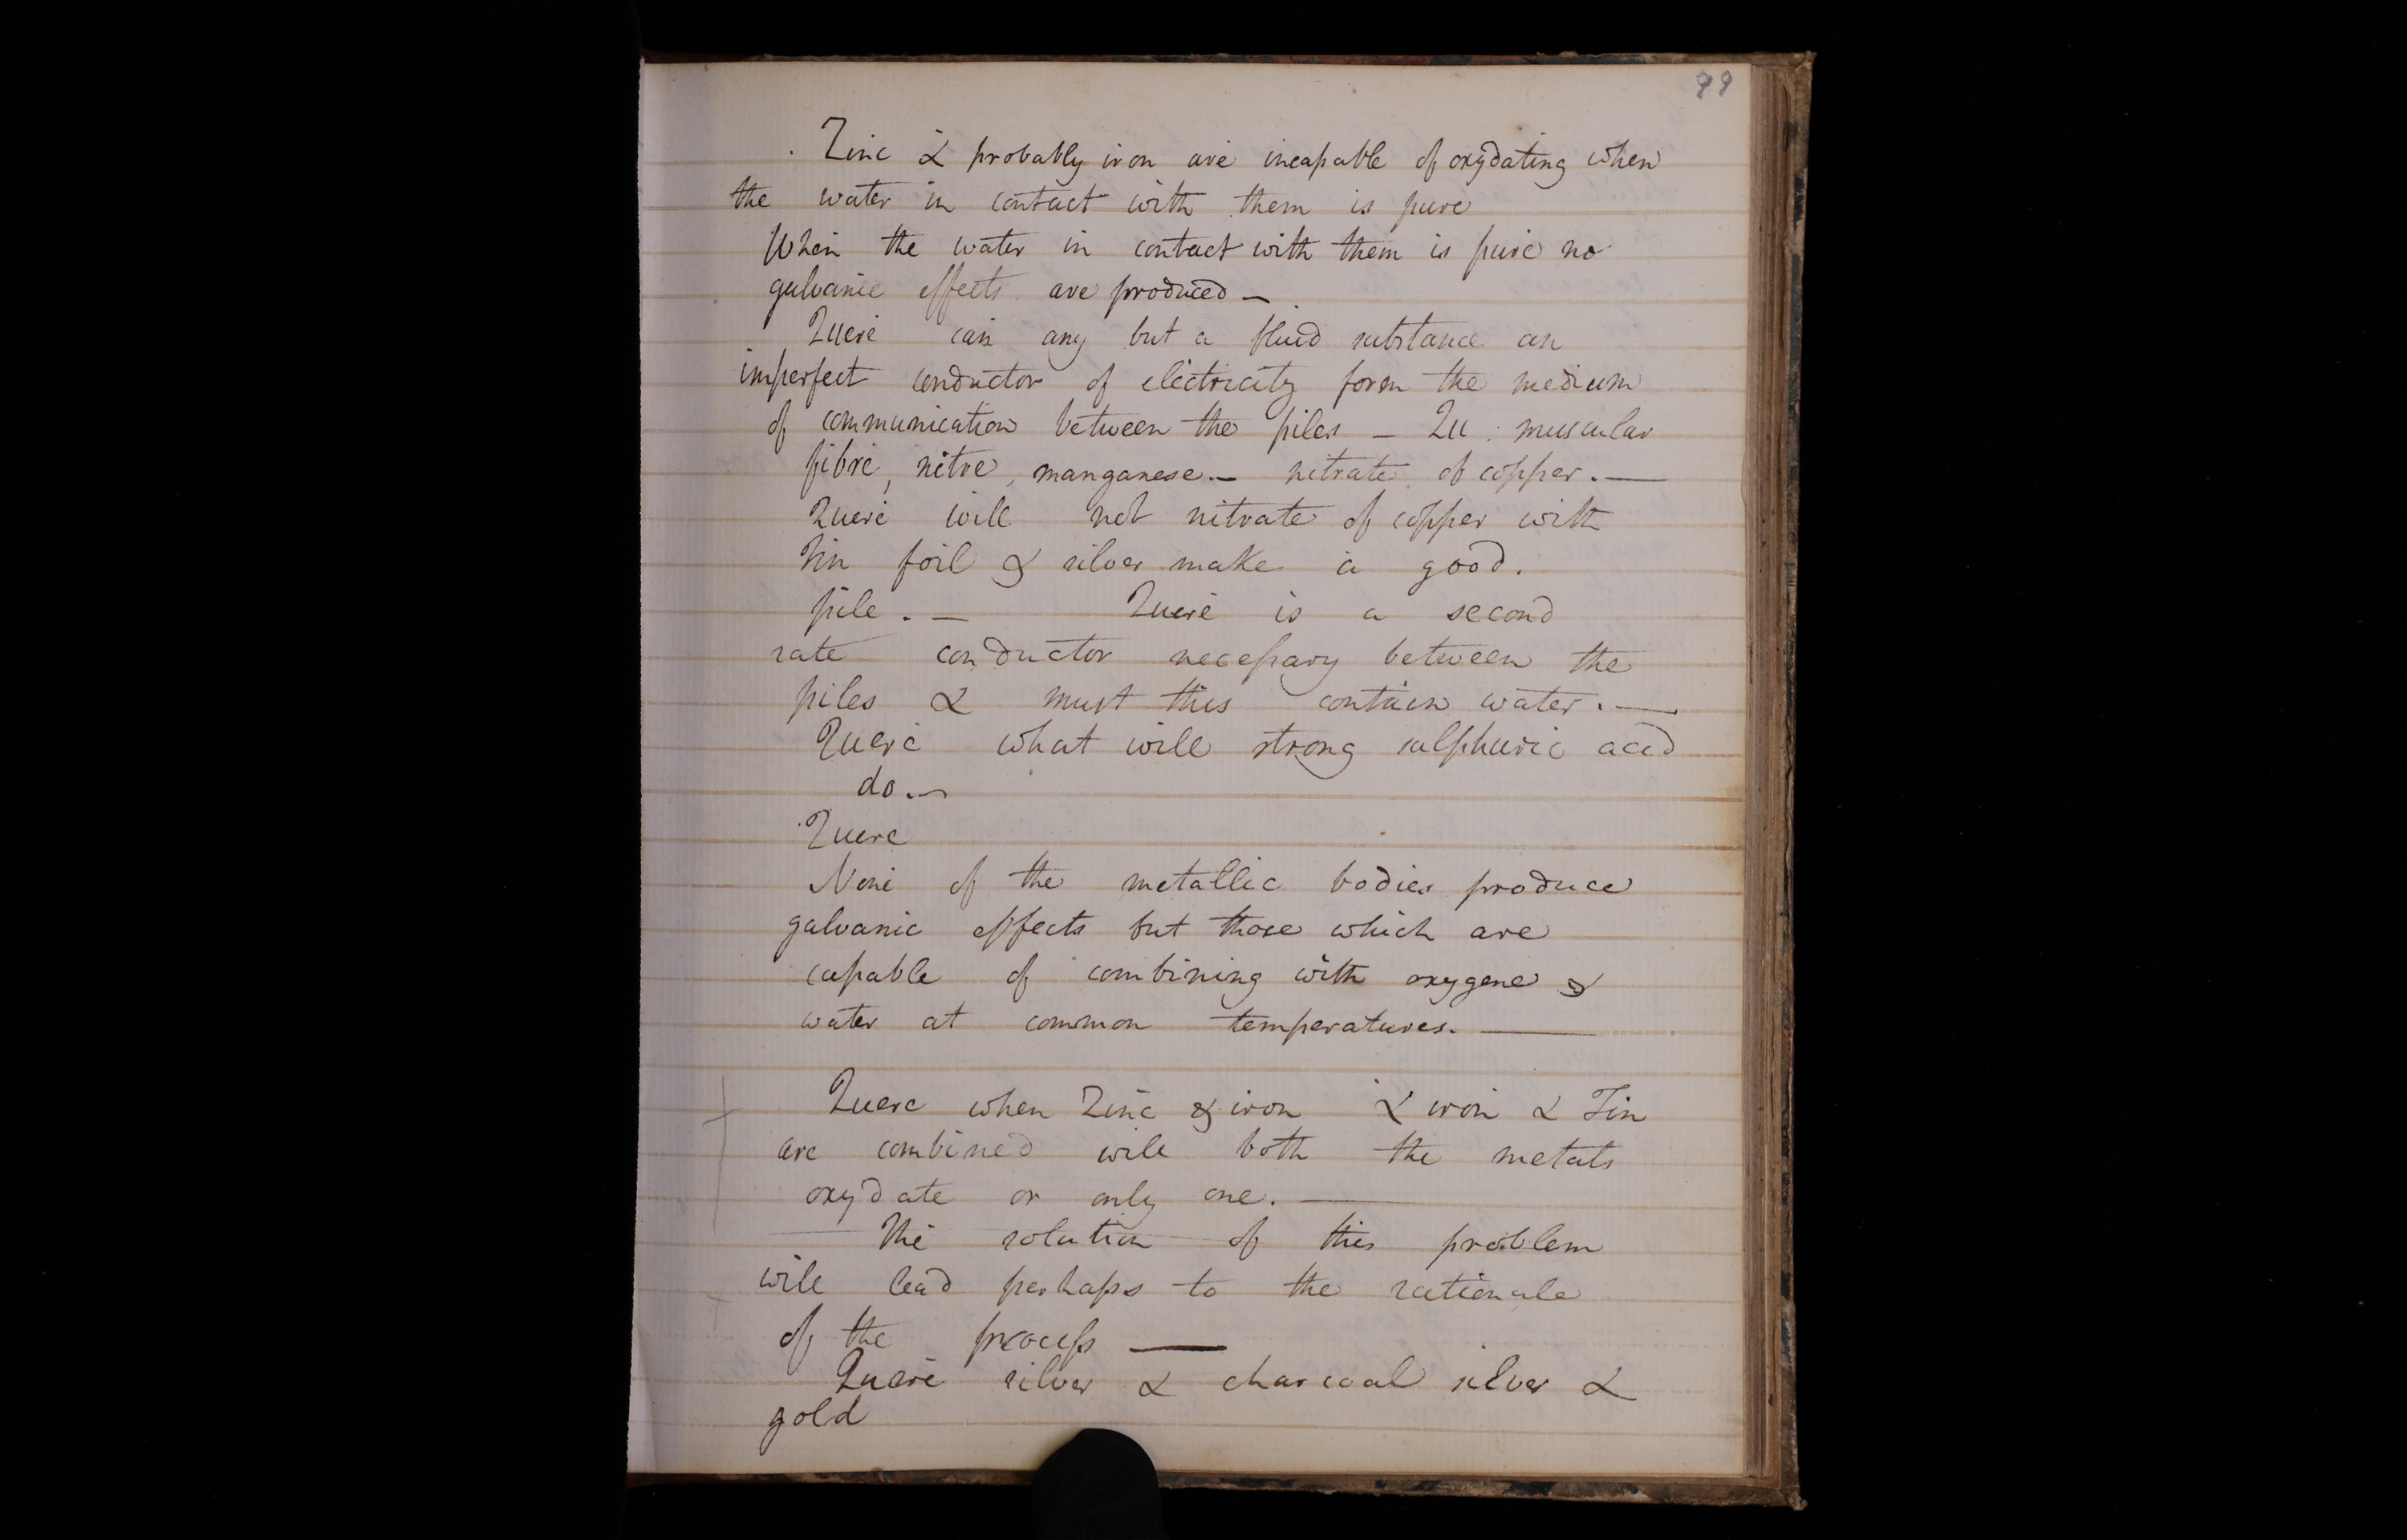 99
Zinc & probably iron are incapable of oxydating when
the water in contact with them is pure
When the water in contact with them is pure no
galvanic effects are produced —
Quere can any but a fluid substance an
imperfect conductor of electricity form the medium
of communication between the piles — Qu: muscular
fibre, nitre, manganese. — nitrate of copper. —
Quere will not nitrate of copper with
tin foil & silver make a good.
pile. — Quere is a second
rate conductor necessary between the
piles & must this contain water. —
Quere what will strong sulphuric acid
do. —
Quere
None of the metallic bodies produce
galvanic effects but those which are
capable of combining with oxygene &
water at common temperatures. —
Quere when Zinc & iron & iron & Tin
are combined will both the metals
oxydate or only one. —
— The solution of this problem
will lead perhaps to the rationale
of the process —
Quere silver & charcoal silver &
gold